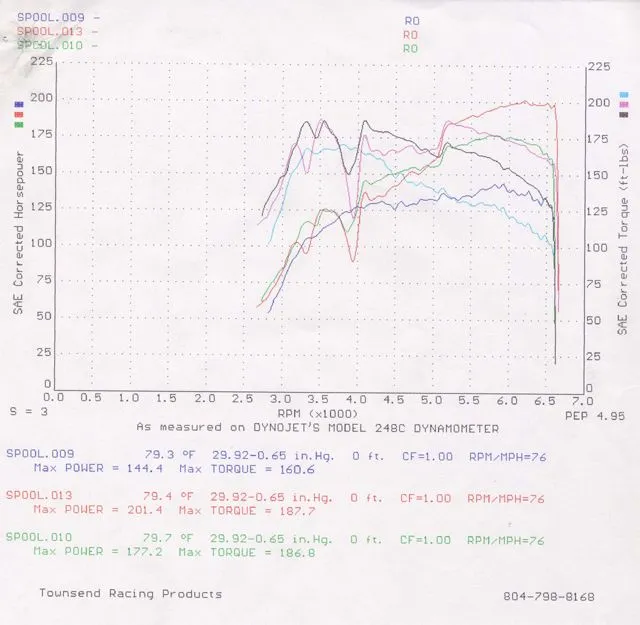 SPOOL.009 - RO
SPOOL.013 - RO
SPOOL.010 - RO
225 225
200 200
175 175
150 150
125 125
100 100
75 75
50 50
25 25
0 0
SAE Corrected Horsepower
SAE Corrected Torque (ft-lbs)
0.0 0.5 1.0 1.5 2.0 2.5 3.0 3.5 4.0 4.5 5.0 5.5 6.0 6.5 7.0
S = 3 RPM (x1000) PEP 4.95
As measured on DYNOJET'S MODEL 248C DYNAMOMETER
SPOOL.009 79.3 ºF 29.92-0.65 in.Hg. 0 ft. CF=1.00 RPM/MPH=76
Max POWER = 144.4 Max TORQUE = 160.6
SPOOL.013 79.4 ºF 29.92-0.65 in.Hg. 0 ft. CF=1.00 RPM/MPH=76
Max POWER = 201.4 Max TORQUE = 187.7
SPOOL.010 79.7 ºF 29.92-0.65 in.Hg. 0 ft. CF=1.00 RPM/MPH=76
Max POWER = 177.2 Max TORQUE = 186.8
Townsend Racing Products 804-798-8168